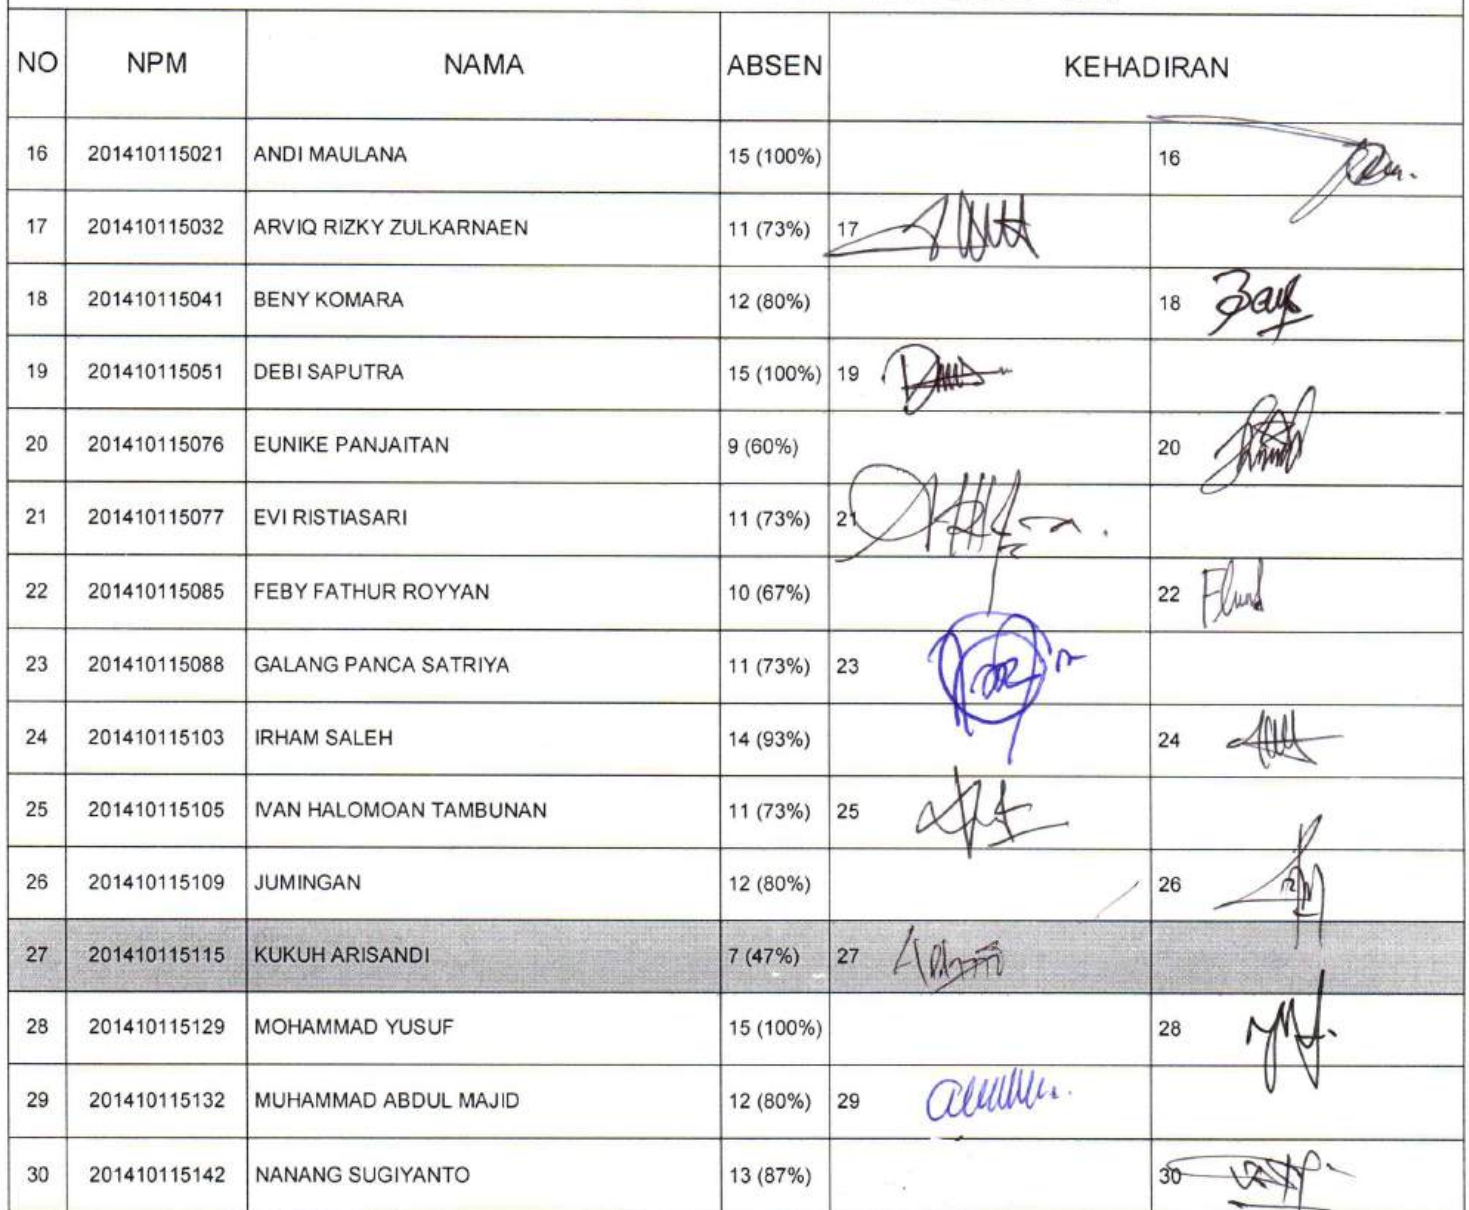 NO NPM NAMA ABSEN KEHADIRAN
16 201410115021 ANDI MAULANA 15 (100%) 16
17 201410115032 ARVIQ RIZKY ZULKARNAEN 11 (73%) 17
18 201410115041 BENY KOMARA 12 (80%) 18
19 201410115051 DEBI SAPUTRA 15 (100%) 19
20 201410115076 EUNIKE PANJAITAN 9 (60%) 20
21 201410115077 EVI RISTIASARI 11 (73%) 21
22 201410115085 FEBY FATHUR ROYYAN 10 (67%) 22
23 201410115088 GALANG PANCA SATRIYA 11 (73%) 23
24 201410115103 IRHAM SALEH 14 (93%) 24
25 201410115105 IVAN HALOMOAN TAMBUNAN 11 (73%) 25
26 201410115109 JUMINGAN 12 (80%) 26
27 201410115115 KUKUH ARISANDI 7 (47%) 27
28 201410115129 MOHAMMAD YUSUF 15 (100%) 28
29 201410115132 MUHAMMAD ABDUL MAJID 12 (80%) 29
30 201410115142 NANANG SUGIYANTO 13 (87%) 30